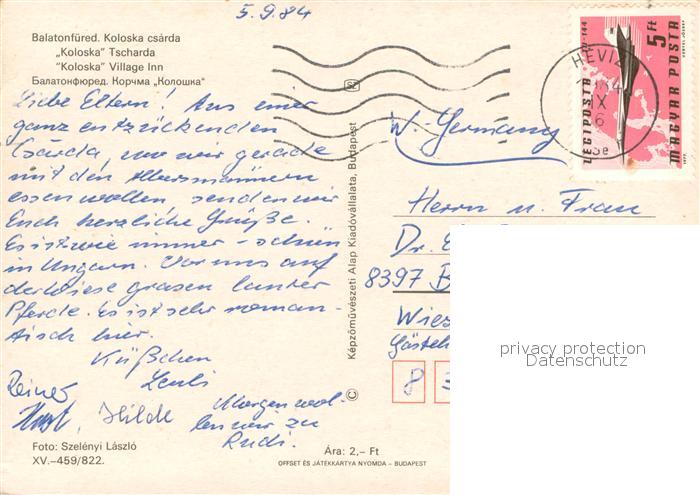 5.9.84
Balatonfüred. Koloska csárda
„Koloska" Tscharda
"Koloska" Village Inn
Балатонфюред. Корчма „Колошка"
Liebe Eltern! Aus einer
ganz entzückenden
Csárda, wo wir gerade
mit den Albersmännern
essen wollen, senden wir
Euch herzliche Grüße.
Es ist wie immer - schön
in Ungarn. Vor uns auf
der Wiese grasen lauter
Pferde. Es ist sehr roman-
tisch hier.
Küßchen
Reiner
Horst, Hilde
Morgen wol-
len wir zu
Rudi.
Foto: Szelényi László
XV.–459/822.
Ára: 2,– Ft
OFFSET ÉS JÁTÉKKÁRTYA NYOMDA – BUDAPEST
© Képzőművészeti Alap Kiadóvállalata, Budapest
LÉGIPOSTA
5 Ft
MAGYAR POSTA
HÉVÍZ
IX
W.-Germany
Herrn u. Frau
Dr.
8397 B
Wies
8 3
privacy protection
Datenschutz